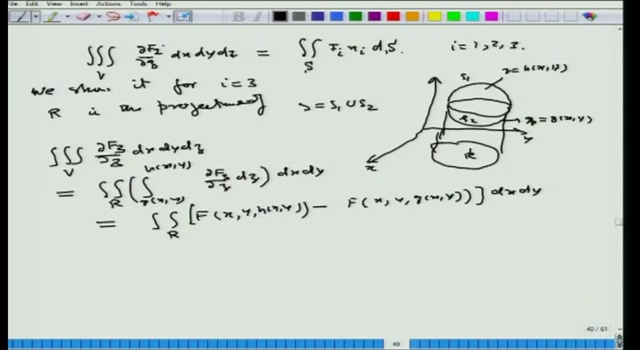 Edit View Insert Actions Tools Help
∭_V ∂F_i/∂z dx dy dz = ∬_S F_i n_i dS. i = 1, 2, 3.
we show it for i = 3
R is the projection of S = S_1 ∪ S_2
S_1 z = h(x, y)
S_2 z = g(x, y)
x y R
∭_V ∂F_3/∂z dx dy dz
= ∬_R ( ∫_{g(x,y)}^{h(x,y)} ∂F_3/∂z dz ) dx dy
= ∬_R [F(x, y, h(x,y)) − F(x, y, g(x,y))] dx dy
40 / 61
40